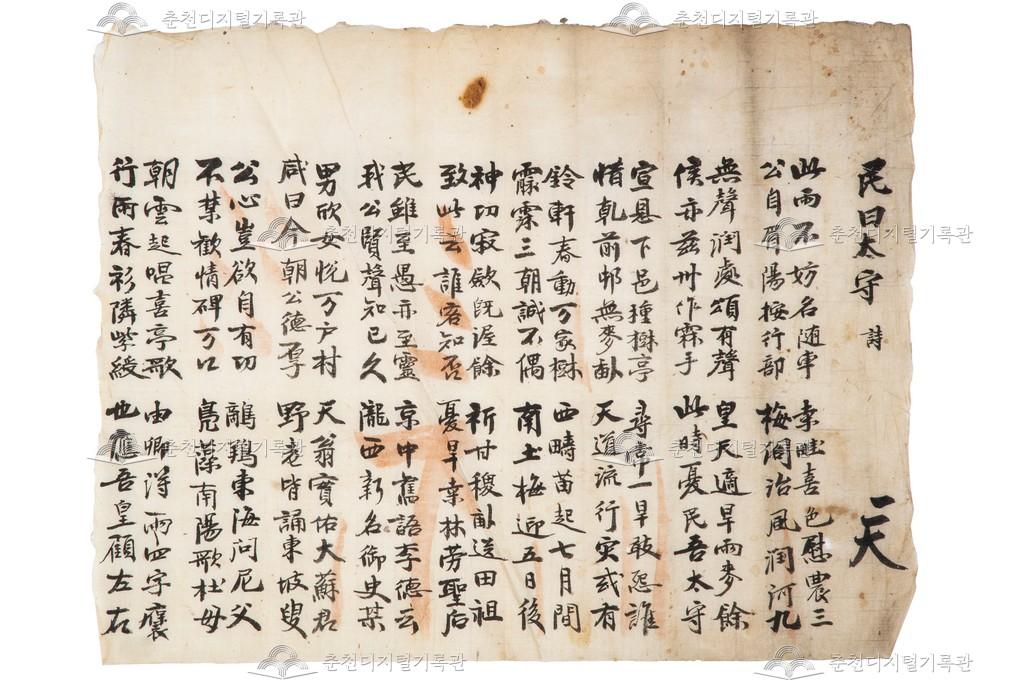 民曰太守 詩 一天
此雨不妨名随車 桑畦喜色慰農三
公自眉陽按行部 梅同治風润河九
無聲润處頌有聲 皇天適旱雨麥餘
侯亦兹州作霖手 此時憂民吾太守
宣恩下邑種樹亭 尋常一旱敢怨誰
惜乾前邨無麥畝 天道流行灾或有
鈴軒春動万家樹 西疇苗起七月間
霡霂三朝誠不偶 南土梅迎五日後
神功寂歛既渥餘 祈甘稷畝送田祖
致此云誰客知否 憂旱桒林劳聖后
民雖至愚亦至靈 京中舊語李德云
我公賢聲知已久 隴西新名御史某
男欣女悅万户村 天翁實佑大蘇君
咸曰今朝公德厚 野老皆誦東坡叟
公心豈欲自有功 鸸鶂東海问尼父
不禁歡情碑万口 凫藻南陽歌杜母
朝雲起唱喜亭歌 由卿淂雨四字褒
行雨春衫隣紫綬 也應吾皇顧左右
춘천디지털기록관
춘천디지털기록관
춘천디지털기록관
춘천디지털기록관
춘천디지털기록관
춘천디지털기록관
춘천디지털기록관
춘천디지털기록관
춘천디지털기록관
춘천디지털기록관
춘천디지털기록관